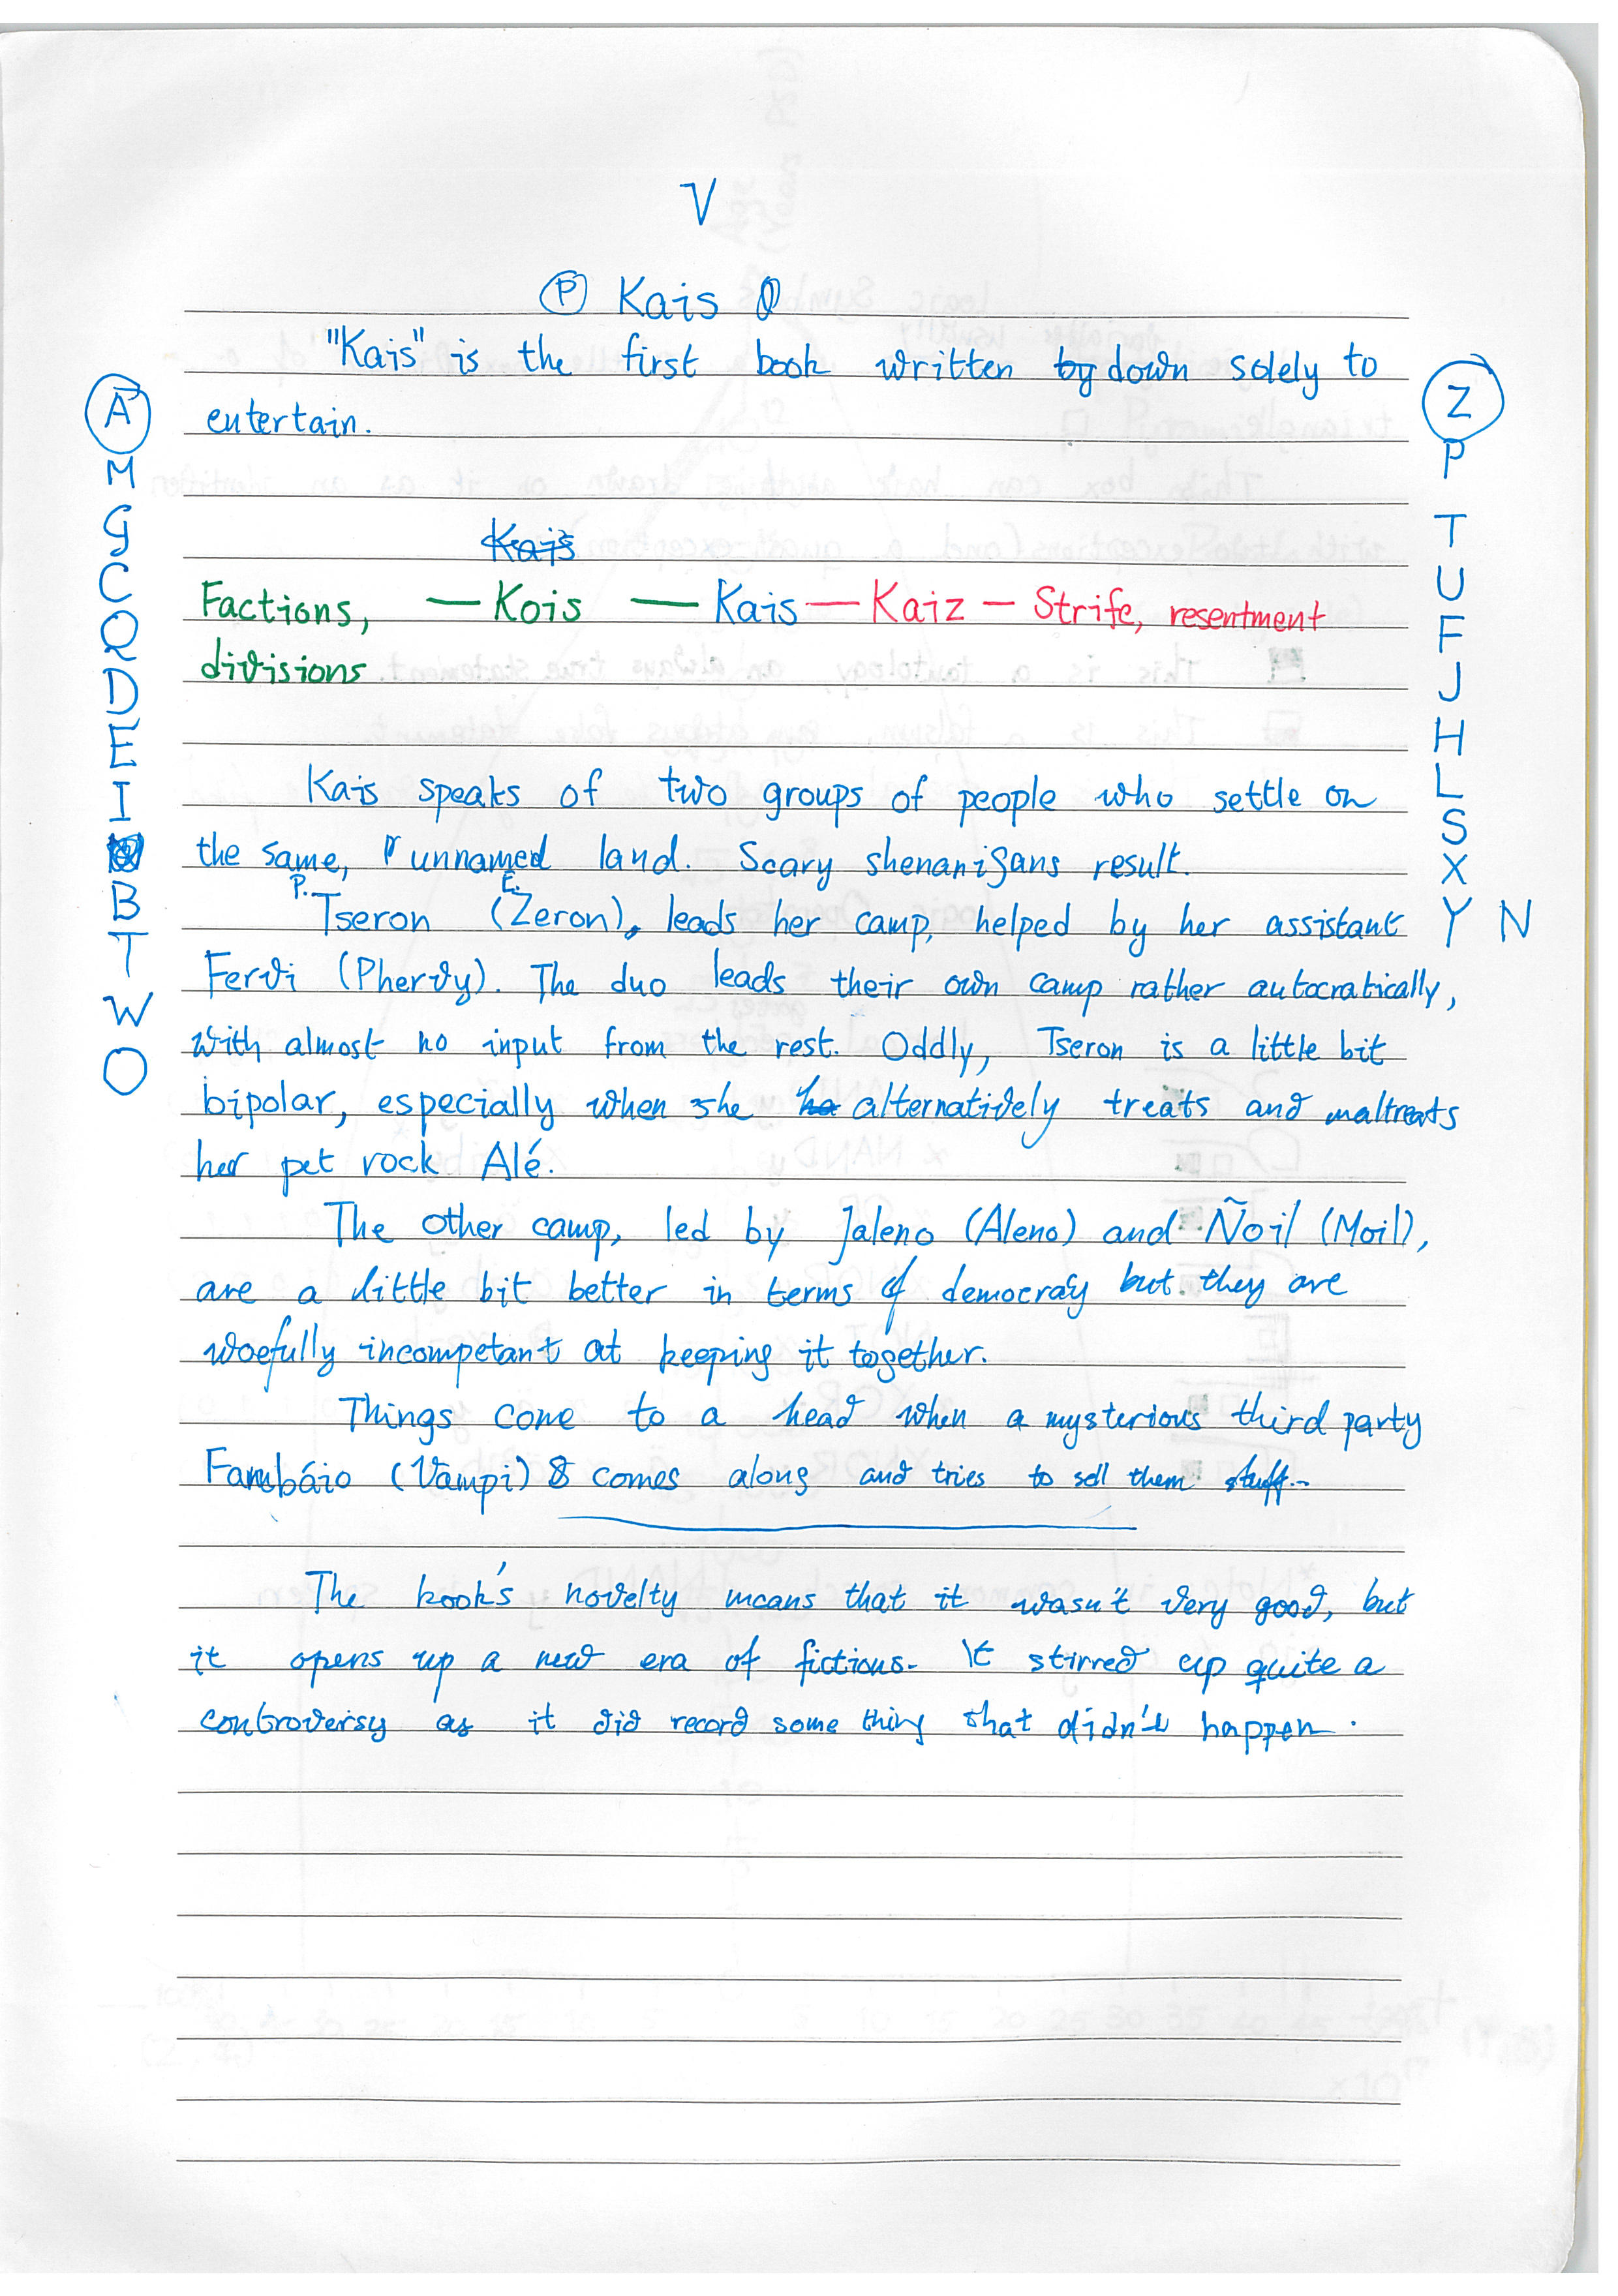 V
Ⓟ Kais
"Kais" is the first book written by down solely to
entertain.
Kais
Factions, — Kois — Kais — Kaiz — Strife, resentment
divisions
Kais speaks of two groups of people who settle on
the same, unnamed land. Scary shenanigans result.
P. E.
Tseron (Zeron), leads her camp, helped by her assistant
Fervi (Phervy). The duo leads their own camp rather autocratically,
with almost no input from the rest. Oddly, Tseron is a little bit
bipolar, especially when she alternatively treats and maltreats
her pet rock Alé.
The other camp, led by Jaleno (Aleno) and Ñoil (Moil),
are a little bit better in terms of democracy but they are
woefully incompetant at keeping it together.
Things come to a head when a mysterious third party
Fambáio (Vampi) comes along and tries to sell them stuff.
The book's novelty means that it wasn't very good, but
it opens up a new era of fictions. It stirred up quite a
controversy as it did record some thing that didn't happen.
A
M
G
C
Q
D
E
I
B
T
W
O
Z
P
T
U
F
J
H
L
S
X
Y N